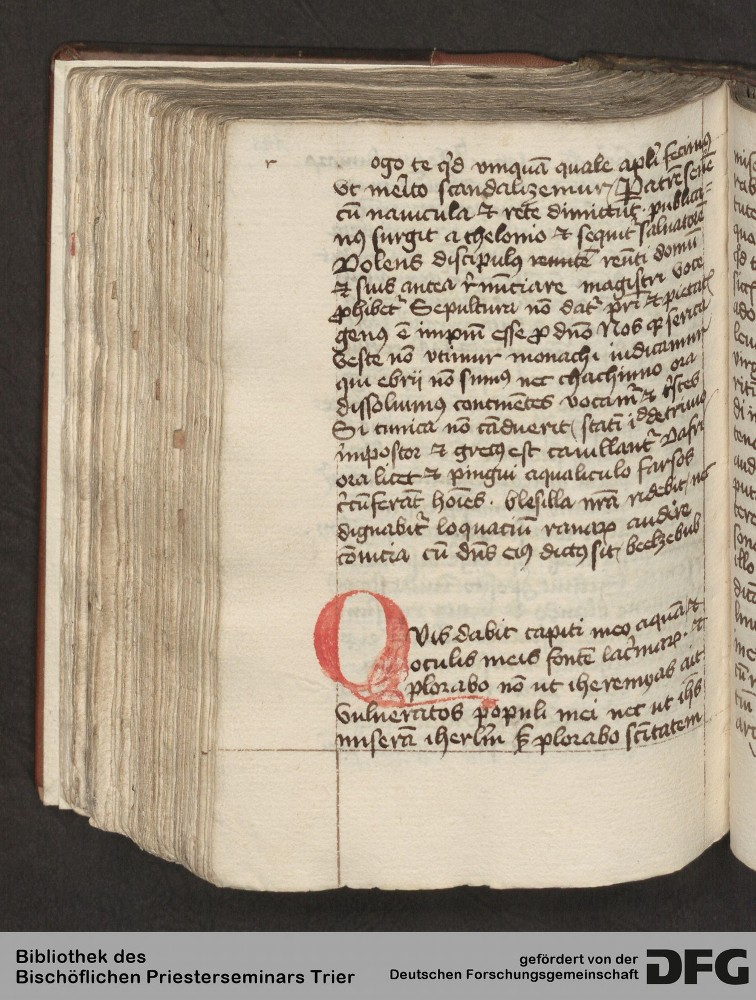 r ogo te q̄d vmquā quale apl̄i fecim9
vt merito scandalizemur / Patrē senē
cū nauicula et rete dimittūt · publica=
n9 surgit a theloneo et sequit̄ saluatorē
Volens discipul9 reuerti domū
et suis antea r̄nūciare magistri voce
ꝓhibet̄ Sepultura nō dat̄ pr̄i et pietatis
gen9 ē impiū esse ꝓ dn̄o Nos q̄ serica
veste nō vtimur monachi iudicamur
qui ebrii nō sum9 nec chachinno ora
dissoluim9 continētes vocam̄ et tristes
Si tunica nō cāduerit / statī i de triuio
impostor et grec9 est cauillant̄ vafri
ora licet et pingui aqualiculo farsos
circūferāt hoīes · blesilla nr̄a ridebit / nec
dignabit̄ loquaciū ranaꝝ audire
cōuicia cū dn̄s ei9 dict9 sit / beelzebub
QVis dabit capiti meo aquā et
oculis meis fontē lacrimaꝝ · et
plorabo nō ut iheremias ait
vulneratos populi mei nec ut ih̄s
miserā iherl̄m sꝫ plorabo sc̄itatem
Bibliothek des
Bischöflichen Priesterseminars Trier
gefördert von der
Deutschen Forschungsgemeinschaft DFG